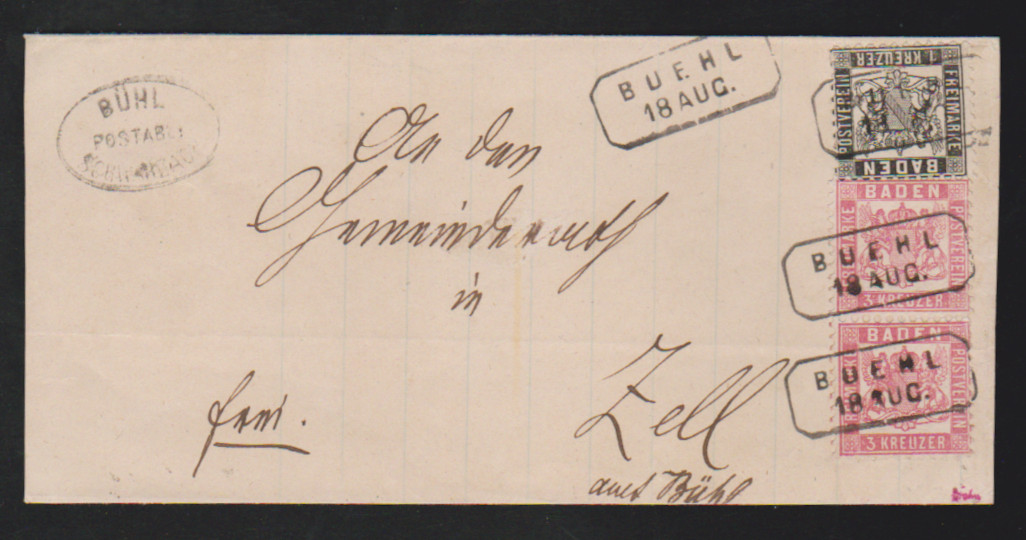 BÜHL
POSTABL:
BUEHL
18 AUG.
1 KREUZER
FREIMARKE
POSTVEREIN
BADEN
An den
Gemeinderath
in
Zell
amt Bühl
frei.
BADEN
FREIMARKE
POSTVEREIN
3 KREUZER
BUEHL
18 AUG.
BADEN
FREIMARKE
POSTVEREIN
3 KREUZER
BUEHL
18 AUG.